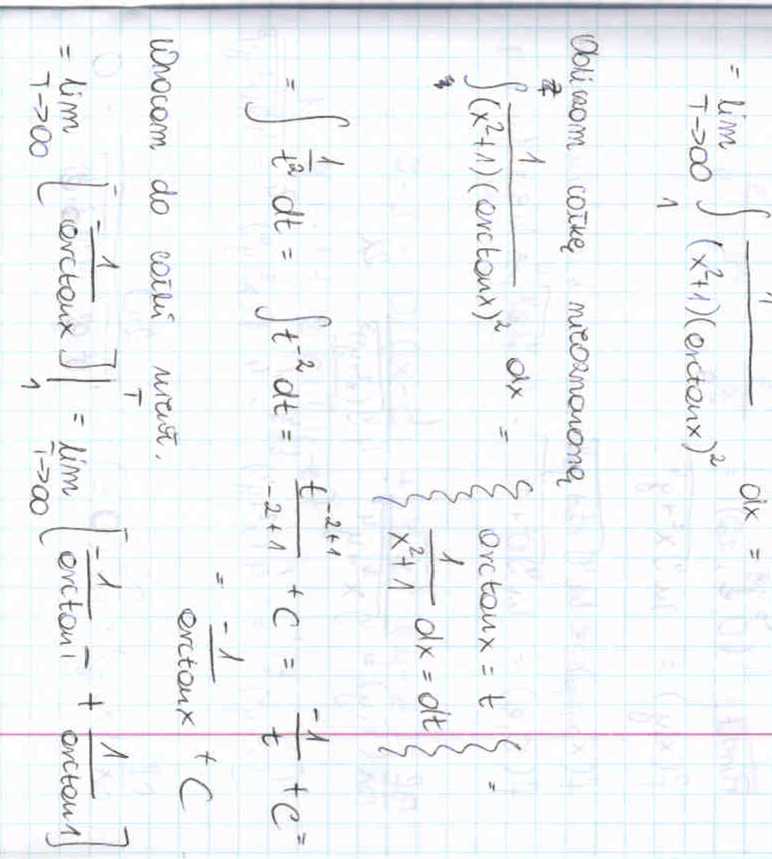 = lim T->∞ ∫ 1 1/((x²+1)(arctanx)²) dx =
Obliczam całkę nieoznaczoną
∫ 1/((x²+1)(arctanx)²) dx = { arctanx = t } =
{ 1/(x²+1) dx = dt }
= ∫ 1/t² dt = ∫ t⁻² dt = t⁻²⁺¹/(-2+1) + C = -1/t + C =
= -1/arctanx + C
Wracam do całki niewł.
= lim T->∞ [ -1/arctanx ] | 1 T = lim T->∞ [ -1/arctanT + 1/arctan1 ]